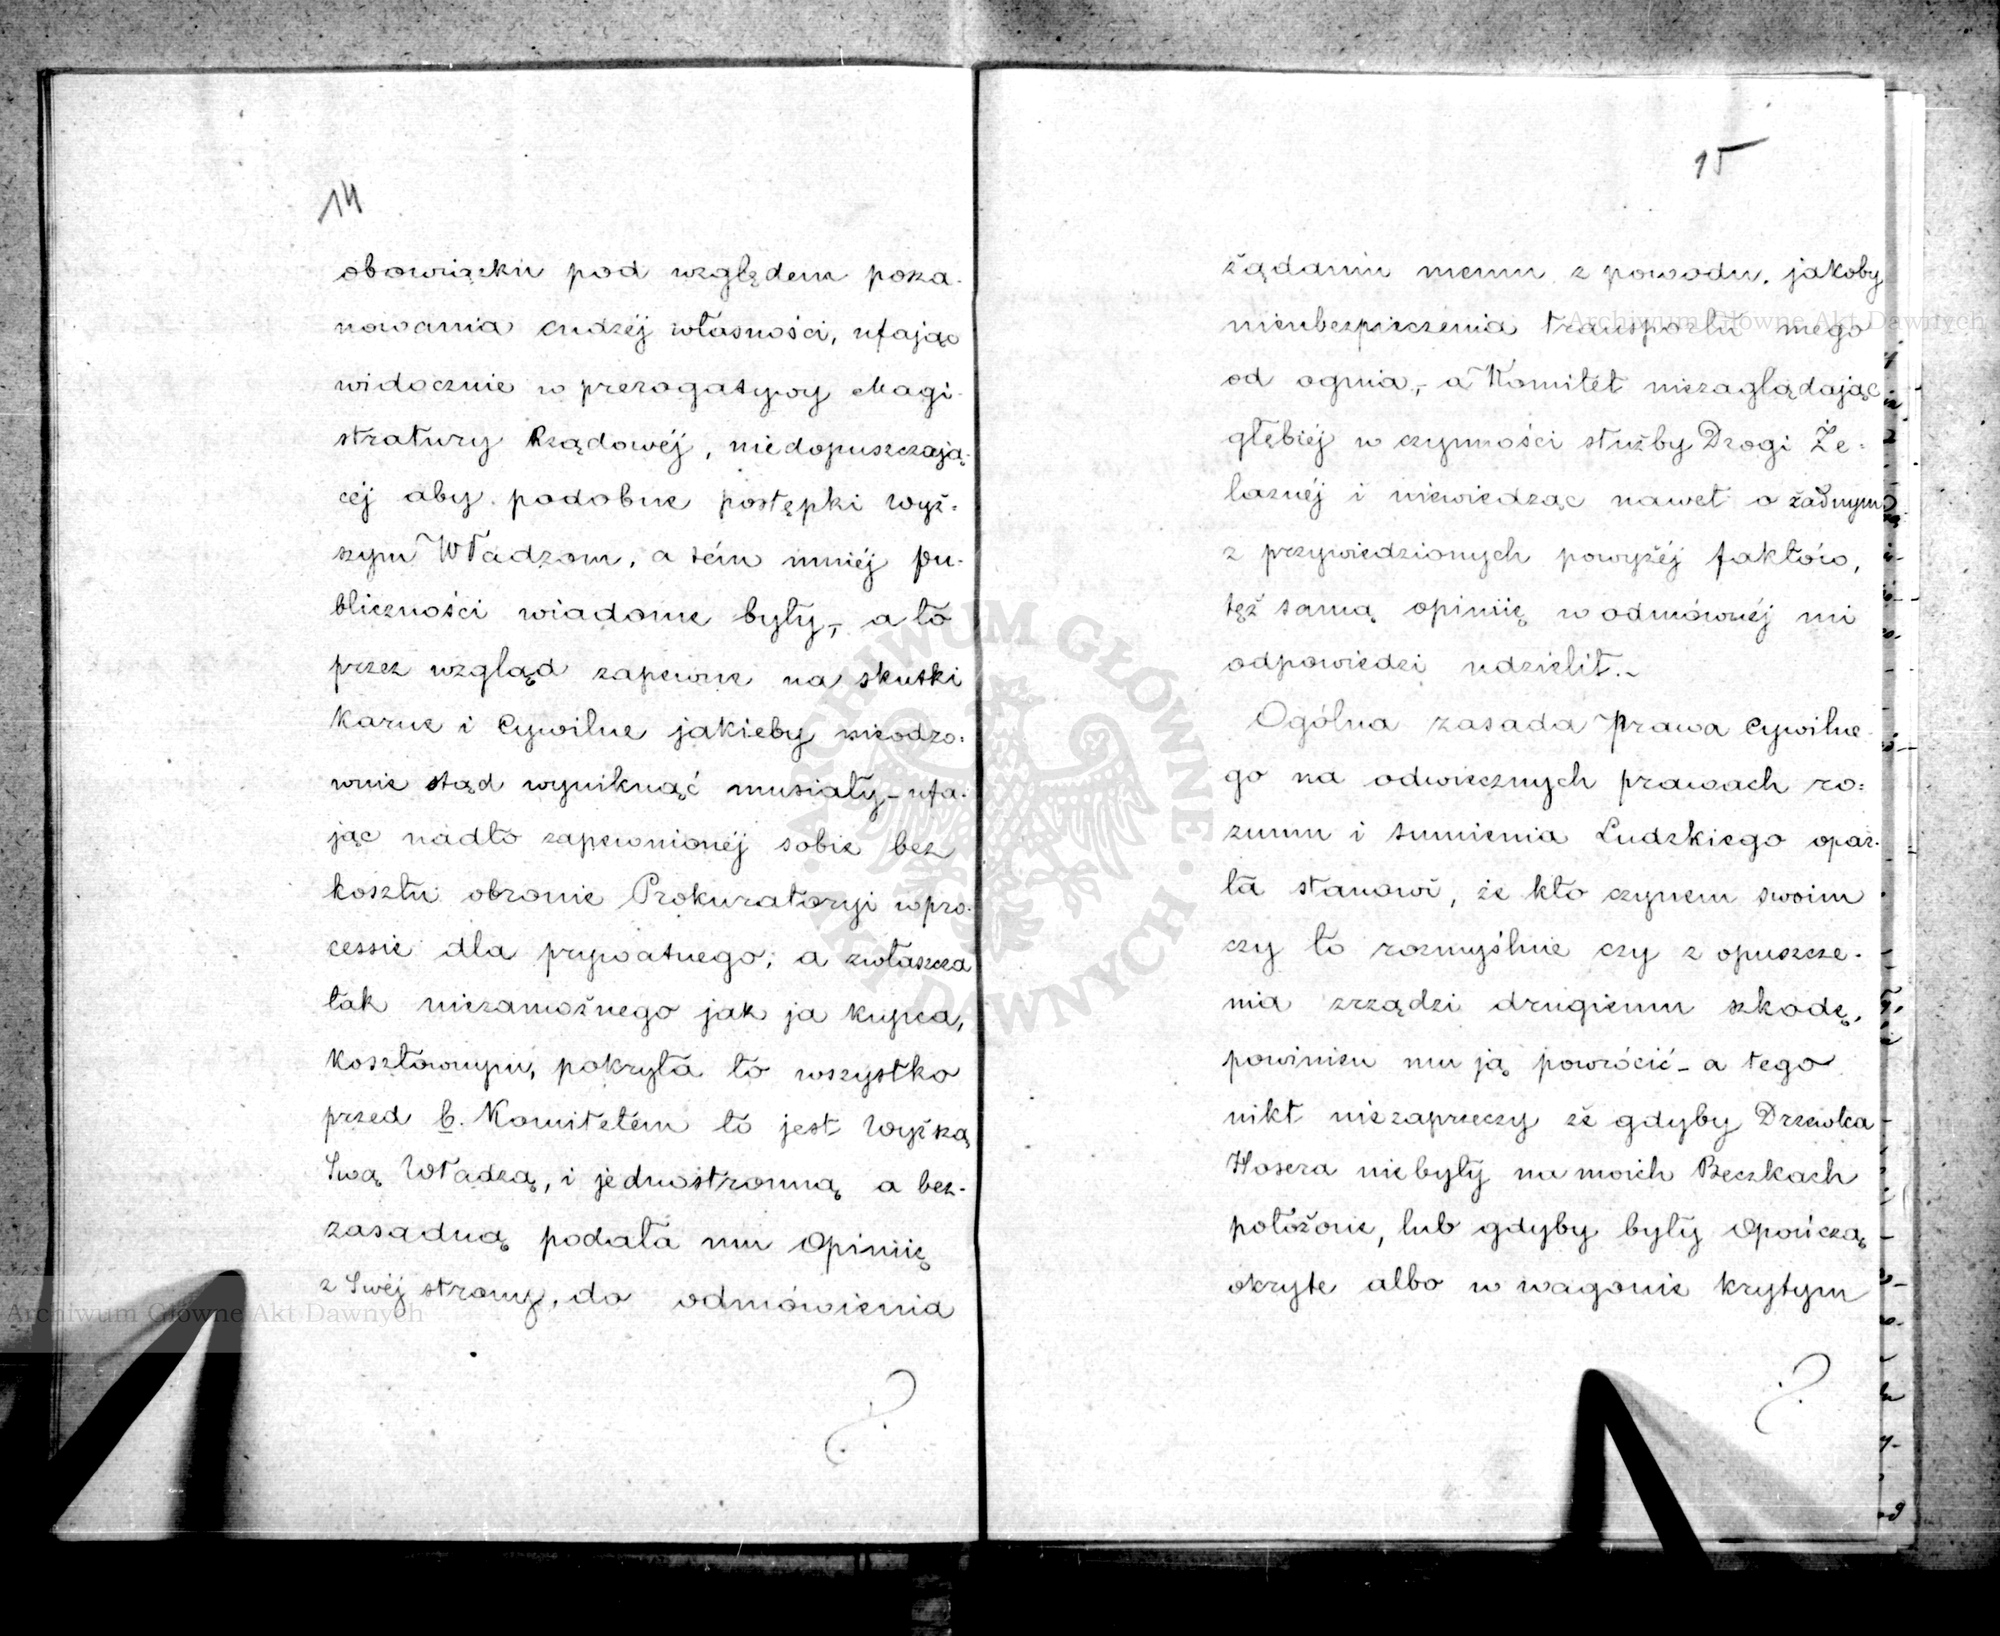 14
obowiązku pod względem posza-
nowania cudzéj własności, ufając
widocznie w prerogatywy Magi-
stratury Rządowéj, niedopuszczają-
céj aby podobne postępki wyż-
szym Władzom, a tém mniéj pu-
bliczności wiadome były, – a to
przez wzgląd zapewne na skutki
Karne i Cywilne jakieby nieodzo-
wnie stąd wyniknąć musiały – ufa-
jąc nadto zapewnionéj sobie bez
kosztu obronie Prokuratoryi w pro-
cessie dla prywatnego, a zwłaszcza
tak niezamożnego jak ja kupca,
Kosztownym, pokryła to wszystko
przed b. Komitetém to jest Wyższą
Swą Władzą, i jednostronną a bez-
zasadną podała mu Opiniię
z Swéj strony, do odmówienia
15
żądaniu memu z powodu, jakoby
nieubezpieczenia transportu mego
od ognia, – a Komitét niezaglądając
głębiéj w czynności służby Drogi Że-
laznéj i niewiedząc nawet o żadnym
z przywiedzionych powyżéj faktów,
tęż samą opiniię w odmównéj mi
odpowiedzi udzielił. –
Ogólna zasada Prawa Cywilne-
go na odwiecznych prawach ro-
zumu i sumienia Ludzkiego opar-
ta stanowi, że kto czynem swoim
czy to rozmyślnie czy z opuszcze-
nia zrządzi drugiemu szkodę,
powinien mu ją powrócić – a tego
nikt niezaprzeczy że gdyby Drzewka
Hosera niebyły na moich Beczkach
położone, lub gdyby były Opończą
okryte albo w wagonie krytym
Archiwum Główne Akt Dawnych
Archiwum Główne Akt Dawnych
ARCHIWUM GŁÓWNE · AKT DAWNYCH ·